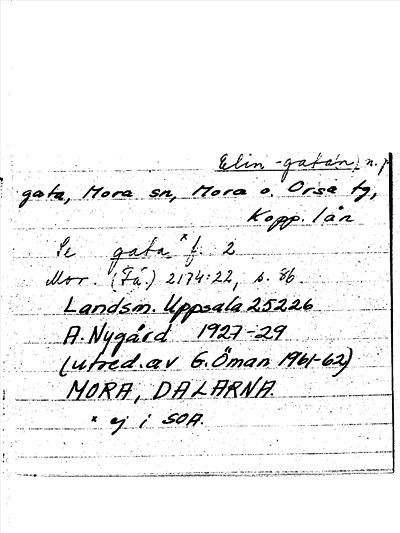 Elin-gatan, n. p
gata, Mora sn, Mora o. Orsa tg,
Kopp. län
Se gata* f. 2
Mor. (Få.) 2174:22, s. 86
Landsm. Uppsala 25226
A. Nygård 1927-29
(utred. av G. Öman 1961-62)
MORA, DALARNA.
* ej i SOA.